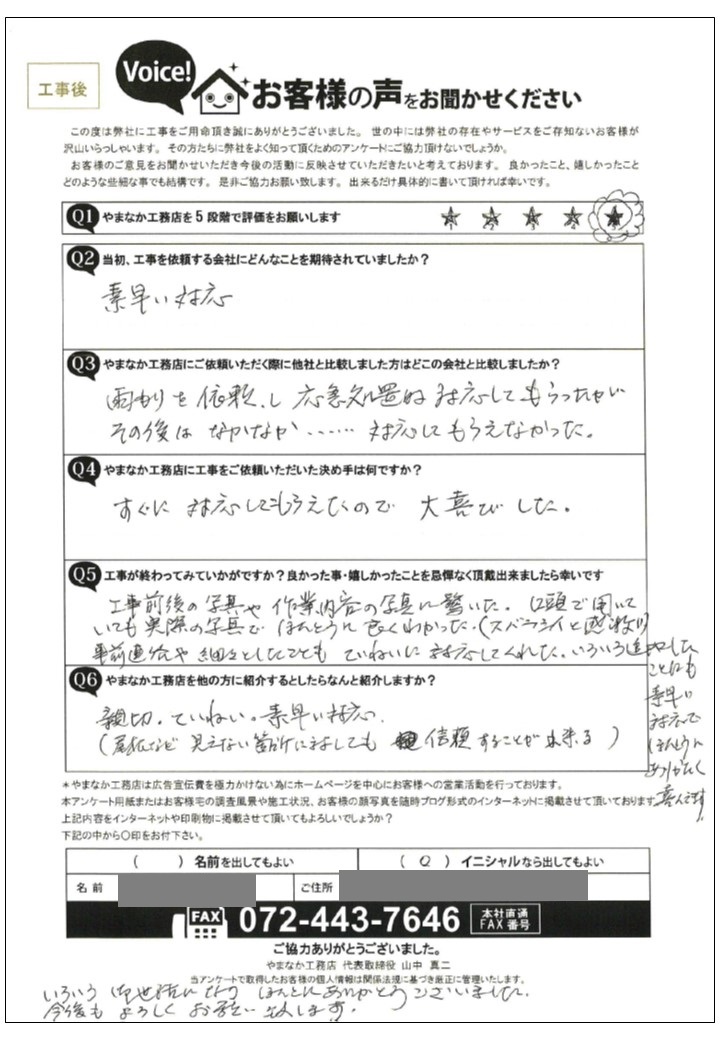 工事後
Voice!
お客様の声をお聞かせください
この度は弊社に工事をご用命頂き誠にありがとうございました。 世の中には弊社の存在やサービスをご存知ないお客様が
沢山いらっしゃいます。 その方たちに弊社をよく知って頂くためのアンケートにご協力頂けないでしょうか。
お客様のご意見をお聞かせいただき今後の活動に反映させていただきたいと考えております。 良かったこと、嬉しかったこと
どのような些細な事でも結構です。 是非ご協力お願い致します。 出来るだけ具体的に書いて頂ければ幸いです。
Q1 やまなか工務店を5段階で評価をお願いします
1 2 3 4 5
Q2 当初、工事を依頼する会社にどんなことを期待されていましたか？
素早い対応
Q3 やまなか工務店にご依頼いただく際に他社と比較しました方はどこの会社と比較しましたか？
雨もりを依頼し 応急処置は 対応してもらったが
その後は なかなか …… 対応してもらえなかった。
Q4 やまなか工務店に工事をご依頼いただいた決め手は何ですか？
すぐに 対応してもらえたので 大喜びした。
Q5 工事が終わってみていかがですか？良かった事・嬉しかったことを忌憚なく頂戴出来ましたら幸いです
工事前後の写真や 作業内容の写真に驚いた。 口頭で聞いて
いても 実際の写真で ほんとうに良くわかった。(スバラシイと感激!!)
事前連絡や 細々としたことも ていねいに 対応してくれた。いろいろ追加した
ことにも
素早い
対応で
ほんとうに
ありがたく
喜んでます
Q6 やまなか工務店を他の方に紹介するとしたらなんと紹介しますか？
親切。ていねい。素早い対応。
(屋根など 見えない箇所に対しても 信頼することが出来る)
＊やまなか工務店は広告宣伝費を極力かけない為にホームページを中心にお客様への営業活動を行っております。
本アンケート用紙またはお客様宅の調査風景や施工状況、お客様の顔写真を随時ブログ形式のインターネットに掲載させて頂いております。
上記内容をインターネットや印刷物に掲載させて頂いてもよろしいでしょうか？
下記の中から〇印をお付下さい。
( ) 名前を出してもよい ( 〇 ) イニシャルなら出してもよい
名前 ご住所
FAX 072-443-7646 本社直通 FAX番号
ご協力ありがとうございました。
やまなか工務店 代表取締役 山中 真二
当アンケートで取得したお客様の個人情報は関係法規に基づき厳正に管理いたします。
いろいろ お世話になり ほんとにありがとうございました。
今後も よろしく お願い 致します。